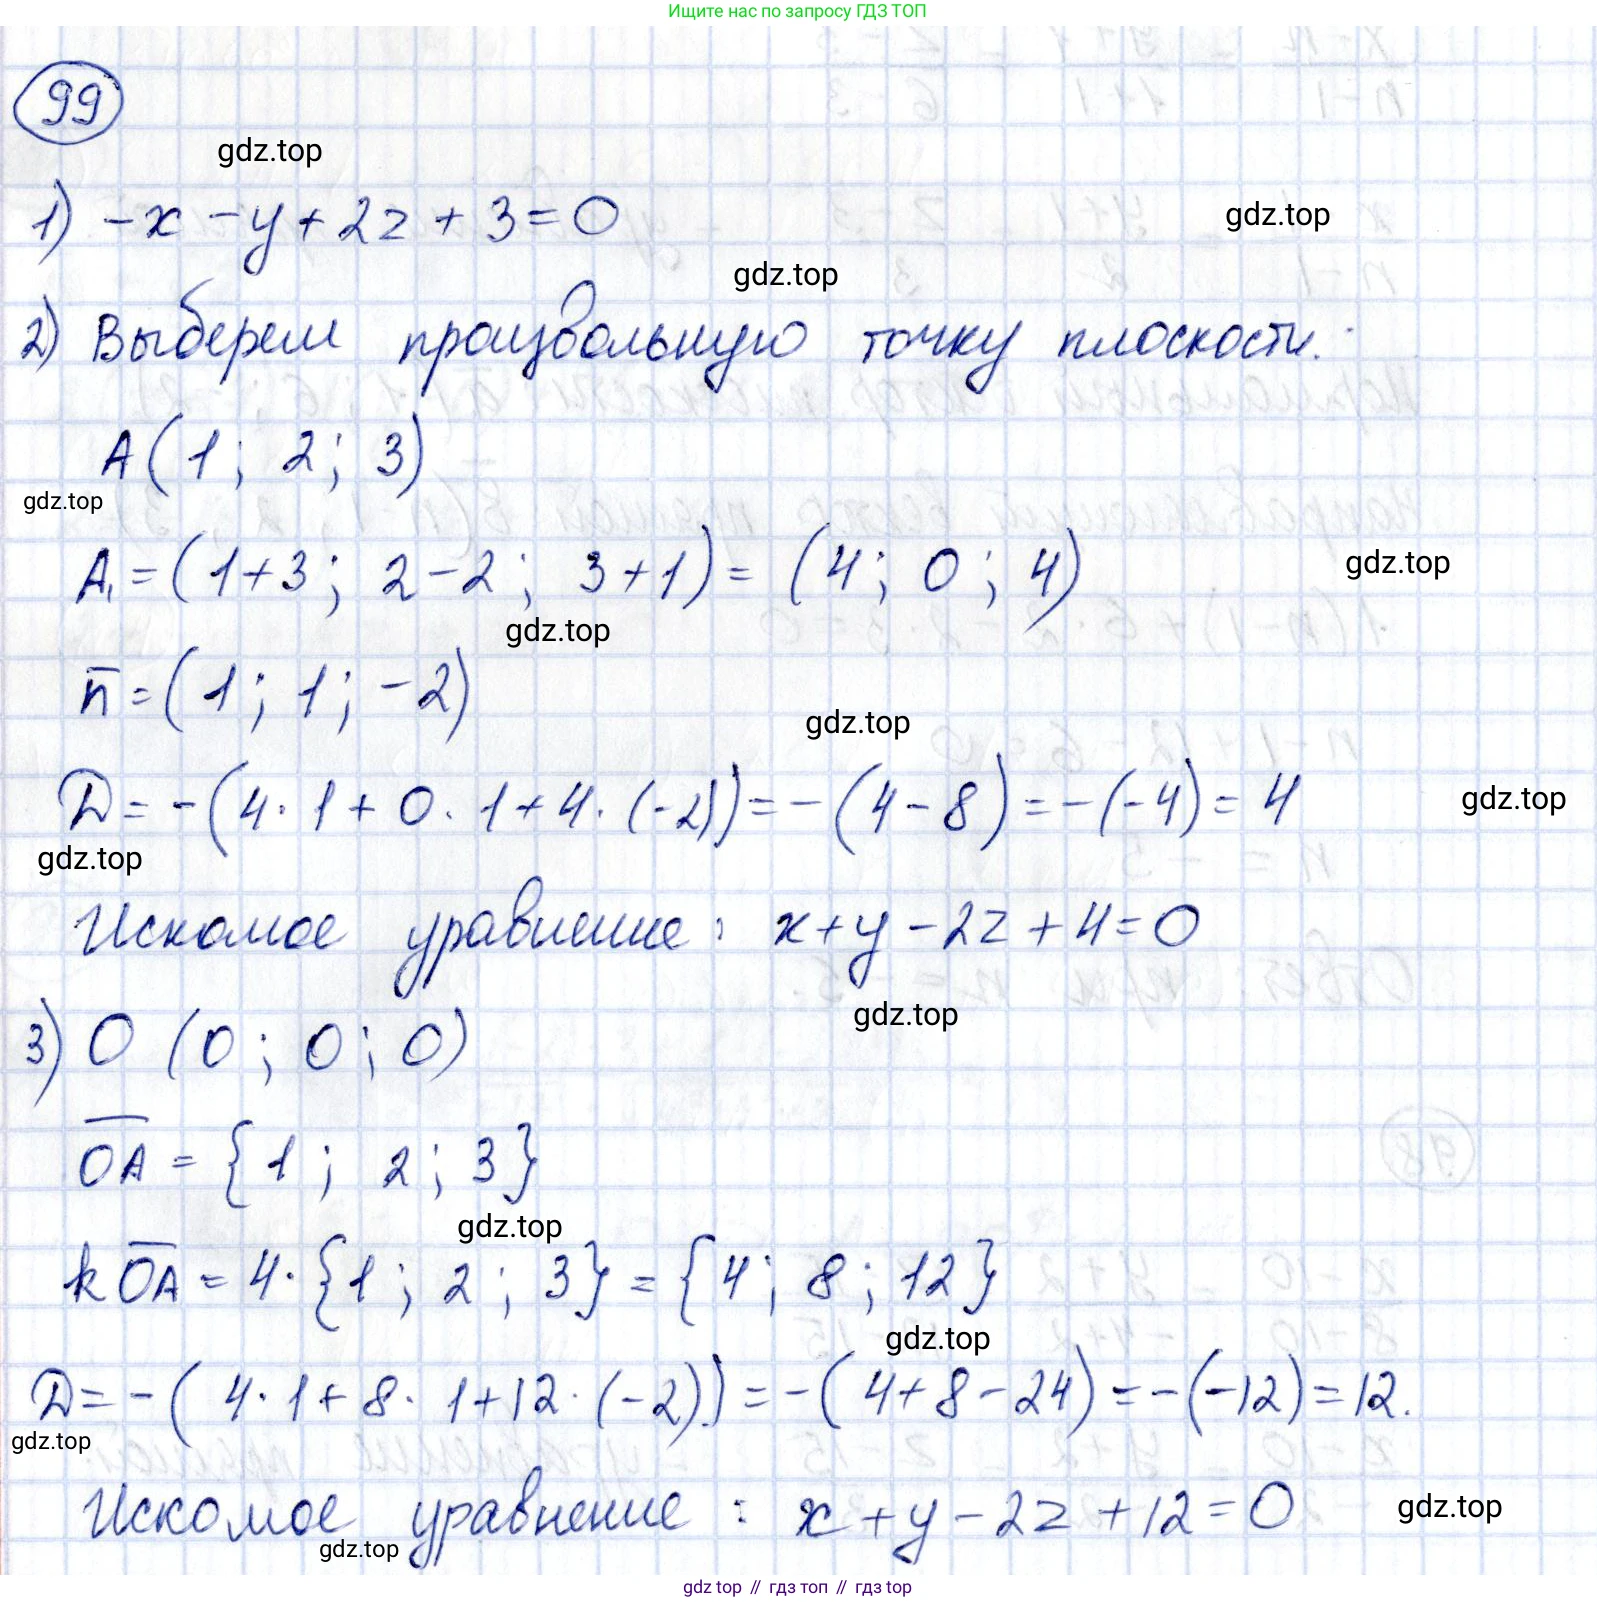 Ищите нас по запросу ГДЗ ТОП
99
gdz.top
1) -x - y + 2z + 3 = 0
gdz.top
gdz.top
2) Выберем произвольную точку плоскости.
A (1; 2; 3)
gdz.top
A₁ = (1+3; 2-2; 3+1) = (4; 0; 4)
gdz.top
gdz.top
n̅ = (1; 1; -2)
gdz.top
D = -(4·1 + 0·1 + 4·(-2)) = -(4-8) = -(-4) = 4
gdz.top
gdz.top
Искомое уравнение: x + y - 2z + 4 = 0
gdz.top
3) O (0; 0; 0)
O̅A̅ = {1; 2; 3}
gdz.top
kO̅A̅ = 4·{1; 2; 3} = {4; 8; 12}
gdz.top
D = -(4·1 + 8·1 + 12·(-2)) = -(4+8-24) = -(-12) = 12.
gdz.top
Искомое уравнение: x + y - 2z + 12 = 0
gdz.top
gdz.top
gdz top // гдз топ // gdz.top